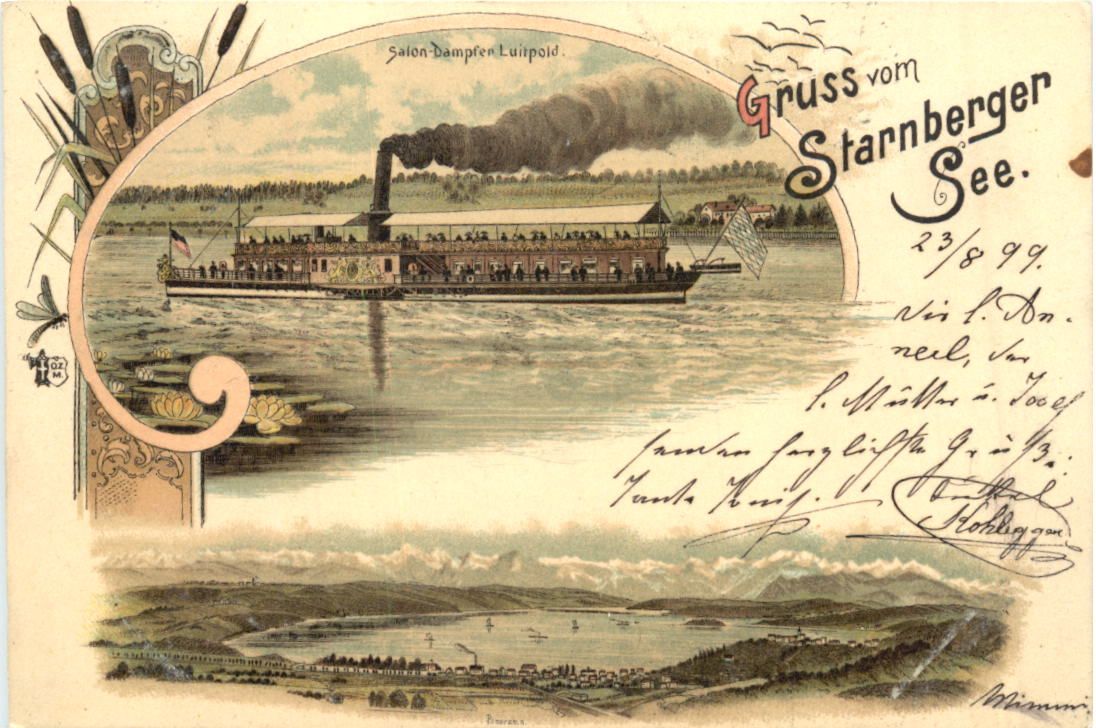 Salon-Dampfer Luitpold.
Gruss vom
Starnberger
See.
23/8 99.
Dir l. An-
nerl, der
l. Mutter u. Josef
senden herzlichste Grüße.
Tante
Kohlegger
OZ
M.
Panorama.
Mimmi